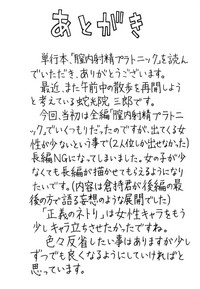 あとがき
単行本、『膣内射精プラトニック』を読ん
でいただき、ありがとうございます。
最近、また午前中の散歩を再開しよう
と考えている蛇光院 三郎です。
今回、当初は全編『膣内射精プラトニッ
ク』でいくつもりだったのですが、出てくる女
性が少ないという事で(2人位しか出せなかった)
長編NGになってしまいました。女の子が少
なくても長編が描かせてもらえるようになり
たいです。(内容は倉持君が後編の最
後の方で語る妄想のような展開でした)
「正義のネトリ」は女性キャラをもう
少しキャラ立ちさせたかったですね。
色々反省したい事はありますが少し
ずつでも良くなるようにしていければと
思っています。